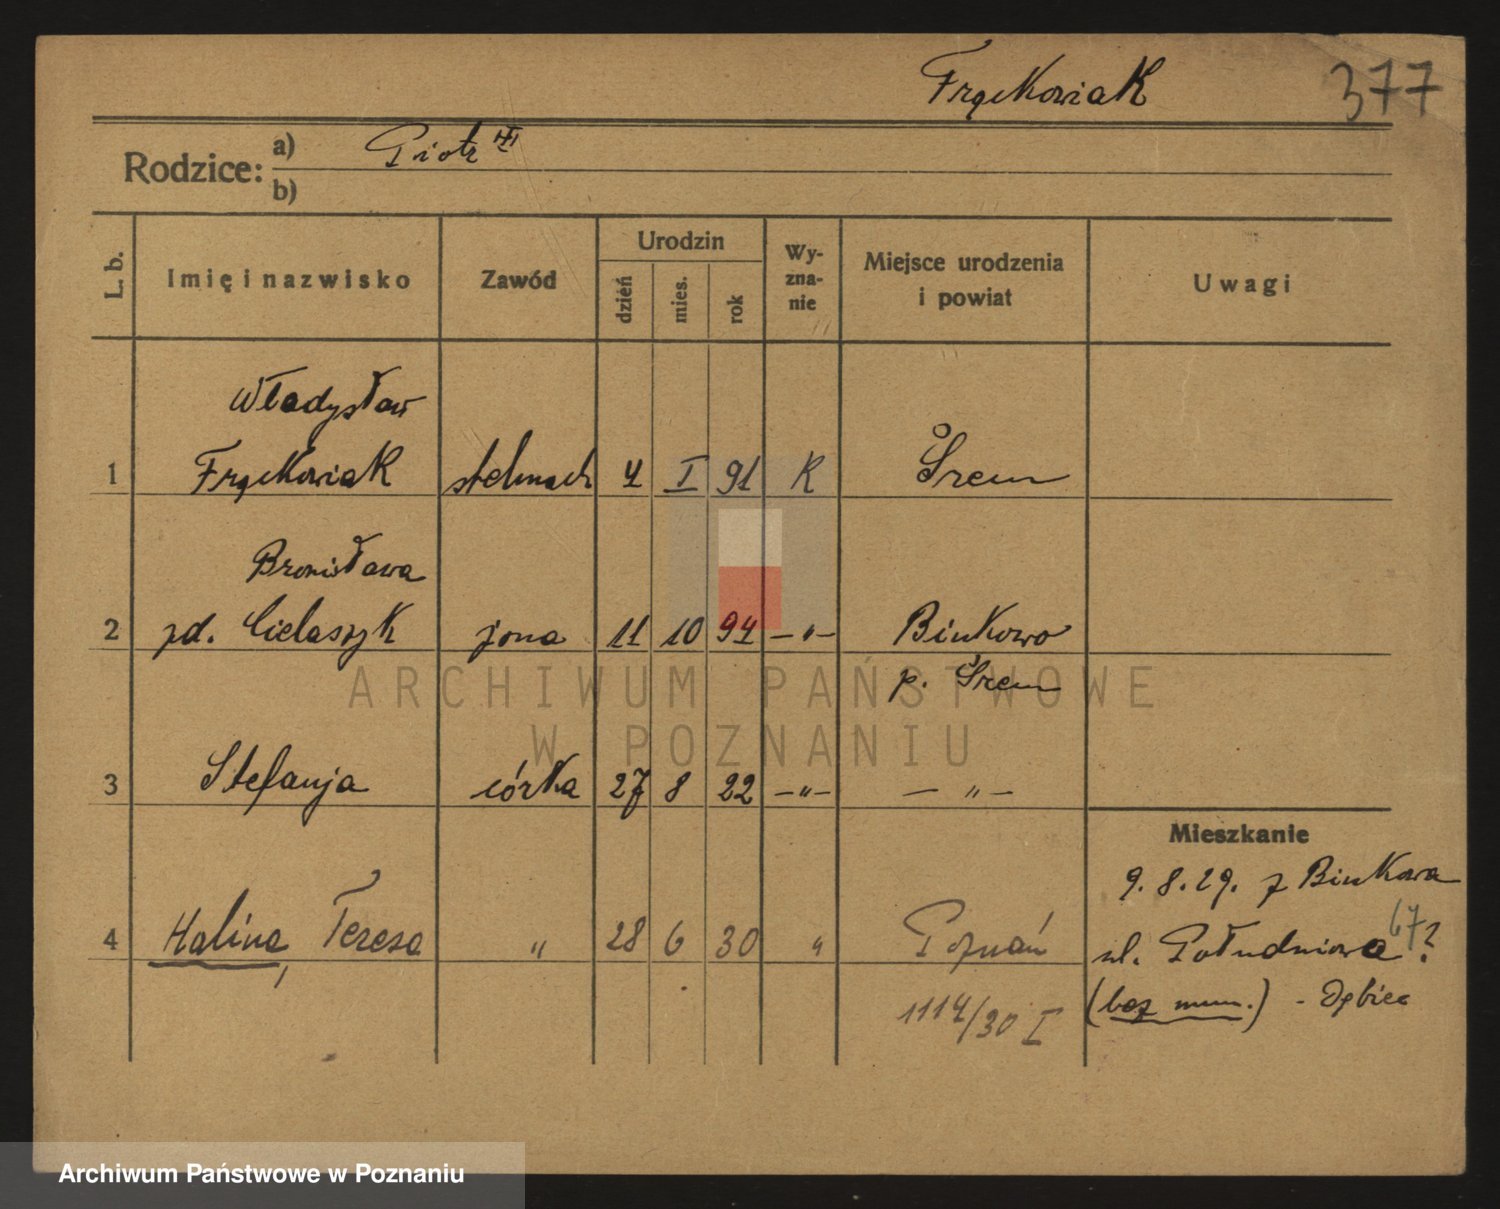 Frąckowiak 377
Rodzice: a) Piotr III
b)
L. b. Imię i nazwisko Zawód Urodzin Wy-zna-nie Miejsce urodzenia i powiat Uwagi
dzień mies. rok
Władysław
1 Frąckowiak stelmach 4 I 91 K Śrem
Bronisława
2 zd. Cielaszyk żona 11 10 94 —„— Binkowo
p. Śrem
3 Stefanja córka 27 8 22 —„— — „ —
Mieszkanie
9.8.29. z Binkowa
4 Halina, Teresa „ 28 6 30 „ Poznań
ul. Południowa 67?
(bez num.) - Dębiec
1114/30 I
ARCHIWUM PAŃSTWOWE
W POZNANIU
Archiwum Państwowe w Poznaniu